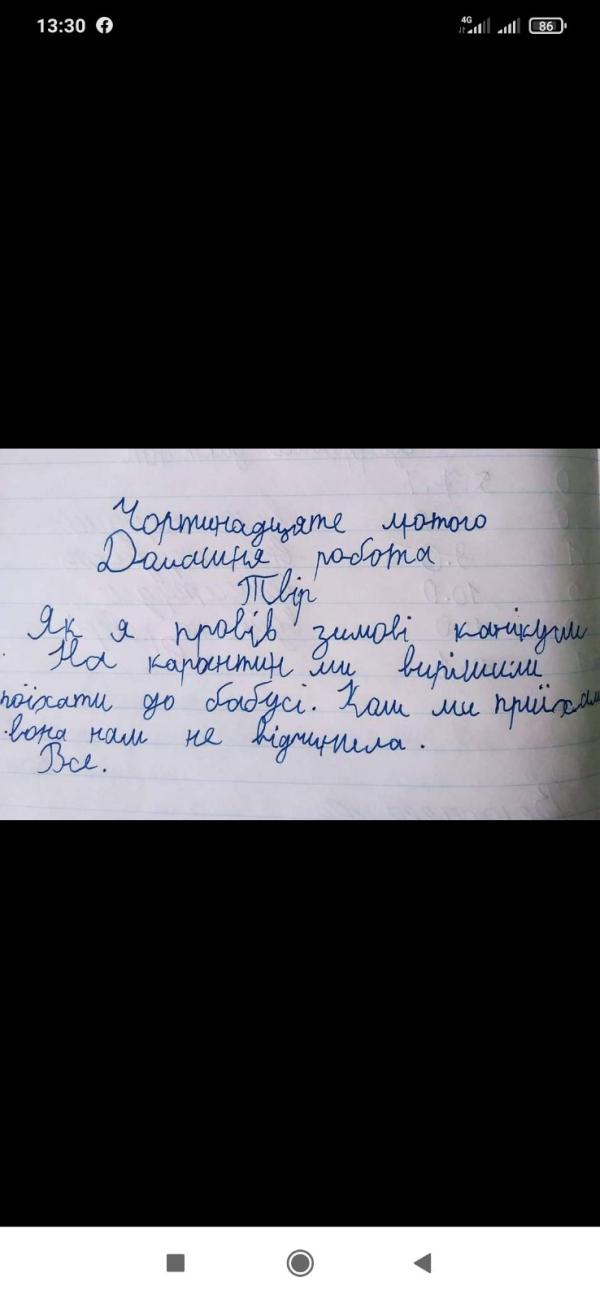 13:30
4G
86
Чортинадцяте лютого
Домашня робота
Твір
Як я провів зимові канікули
На карантин ми вирішили
поїхати до бабусі. Коли ми приїхали
вона нам не відчинила.
Все.